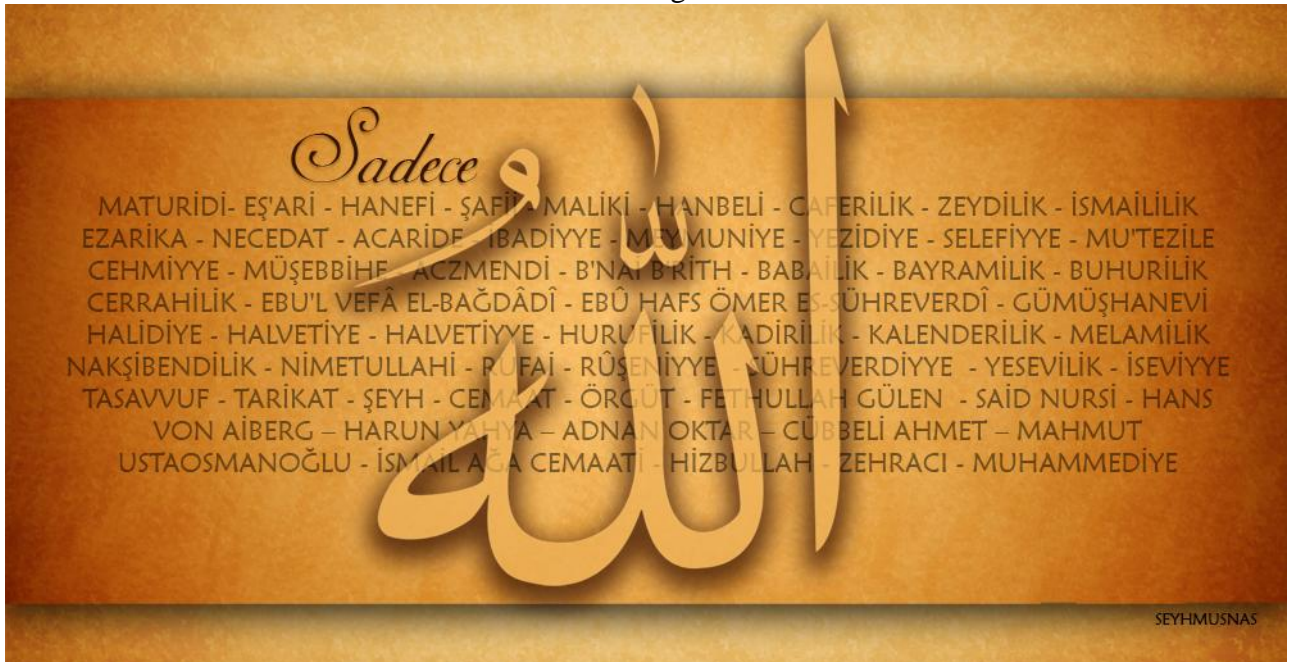 Sadece
الله
MATURİDİ- EŞ'ARİ - HANEFİ - ŞAFİİ - MALİKİ - HANBELİ - CAFERİLİK - ZEYDİLİK - İSMAİLİLİK
EZARİKA - NECEDAT - ACARİDE - İBADİYYE - MEYMUNİYE - YEZİDİYE - SELEFİYYE - MU'TEZİLE
CEHMİYYE - MÜŞEBBİHE - ACZMENDİ - B'NAI B'RİTH - BABAİLİK - BAYRAMİLİK - BUHURİLİK
CERRAHİLİK - EBU'L VEFÂ EL-BAĞDÂDÎ - EBÛ HAFS ÖMER ES-SÜHREVERDÎ - GÜMÜŞHANEVİ
HALİDİYE - HALVETİYE - HALVETİYYE - HURUFİLİK - KADİRİLİK - KALENDERİLİK - MELAMİLİK
NAKŞİBENDİLİK - NİMETULLAHİ - RUFAİ - RÛŞENİYYE - SÜHREVERDİYYE - YESEVİLİK - İSEVİYYE
TASAVVUF - TARİKAT - ŞEYH - CEMAAT - ÖRGÜT - FETHULLAH GÜLEN - SAİD NURSİ - HANS
VON AİBERG – HARUN YAHYA – ADNAN OKTAR – CÜBBELİ AHMET – MAHMUT
USTAOSMANOĞLU - İSMAİL AĞA CEMAATİ - HİZBULLAH - ZEHRACI - MUHAMMEDİYE
SEYHMUSNAS